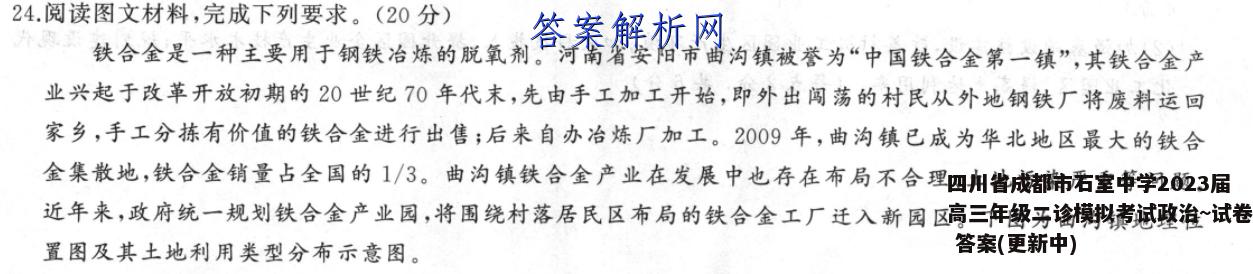 24.阅读图文材料,完成下列要求。(20分)
答案解析网
铁合金是一种主要用于钢铁冶炼的脱氧剂。河南省安阳市曲沟镇被誉为“中国铁合金第一镇”,其铁合金产
业兴起于改革开放初期的20世纪70年代末,先由手工加工开始,即外出闯荡的村民从外地钢铁厂将废料运回
家乡,手工分拣有价值的铁合金进行出售;后来自办冶炼厂加工。2009年,曲沟镇已成为华北地区最大的铁合
金集散地,铁合金销量占全国的1/3。曲沟镇铁合金产业在发展中也存在布局不合理
四川省成都市石室中学2023届
近年来,政府统一规划铁合金产业园,将围绕村落居民区布局的铁合金工厂迁入新园区。
高三年级二诊模拟考试政治~试卷
置图及其土地利用类型分布示意图。
答案(更新中)